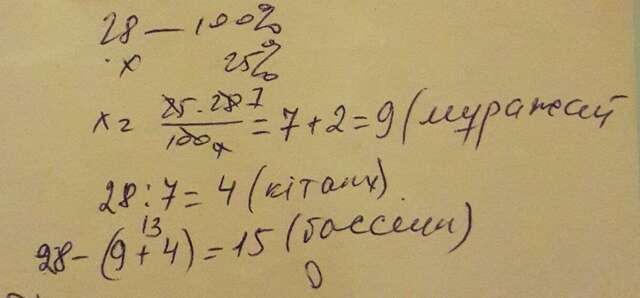 28 — 100%
x 25%
x = 25 · 28 7 / 100 4 = 7 + 2 = 9 (муражай
28 : 7 = 4 (кітапх)
13
28 - (9 + 4) = 15 (бассейн)